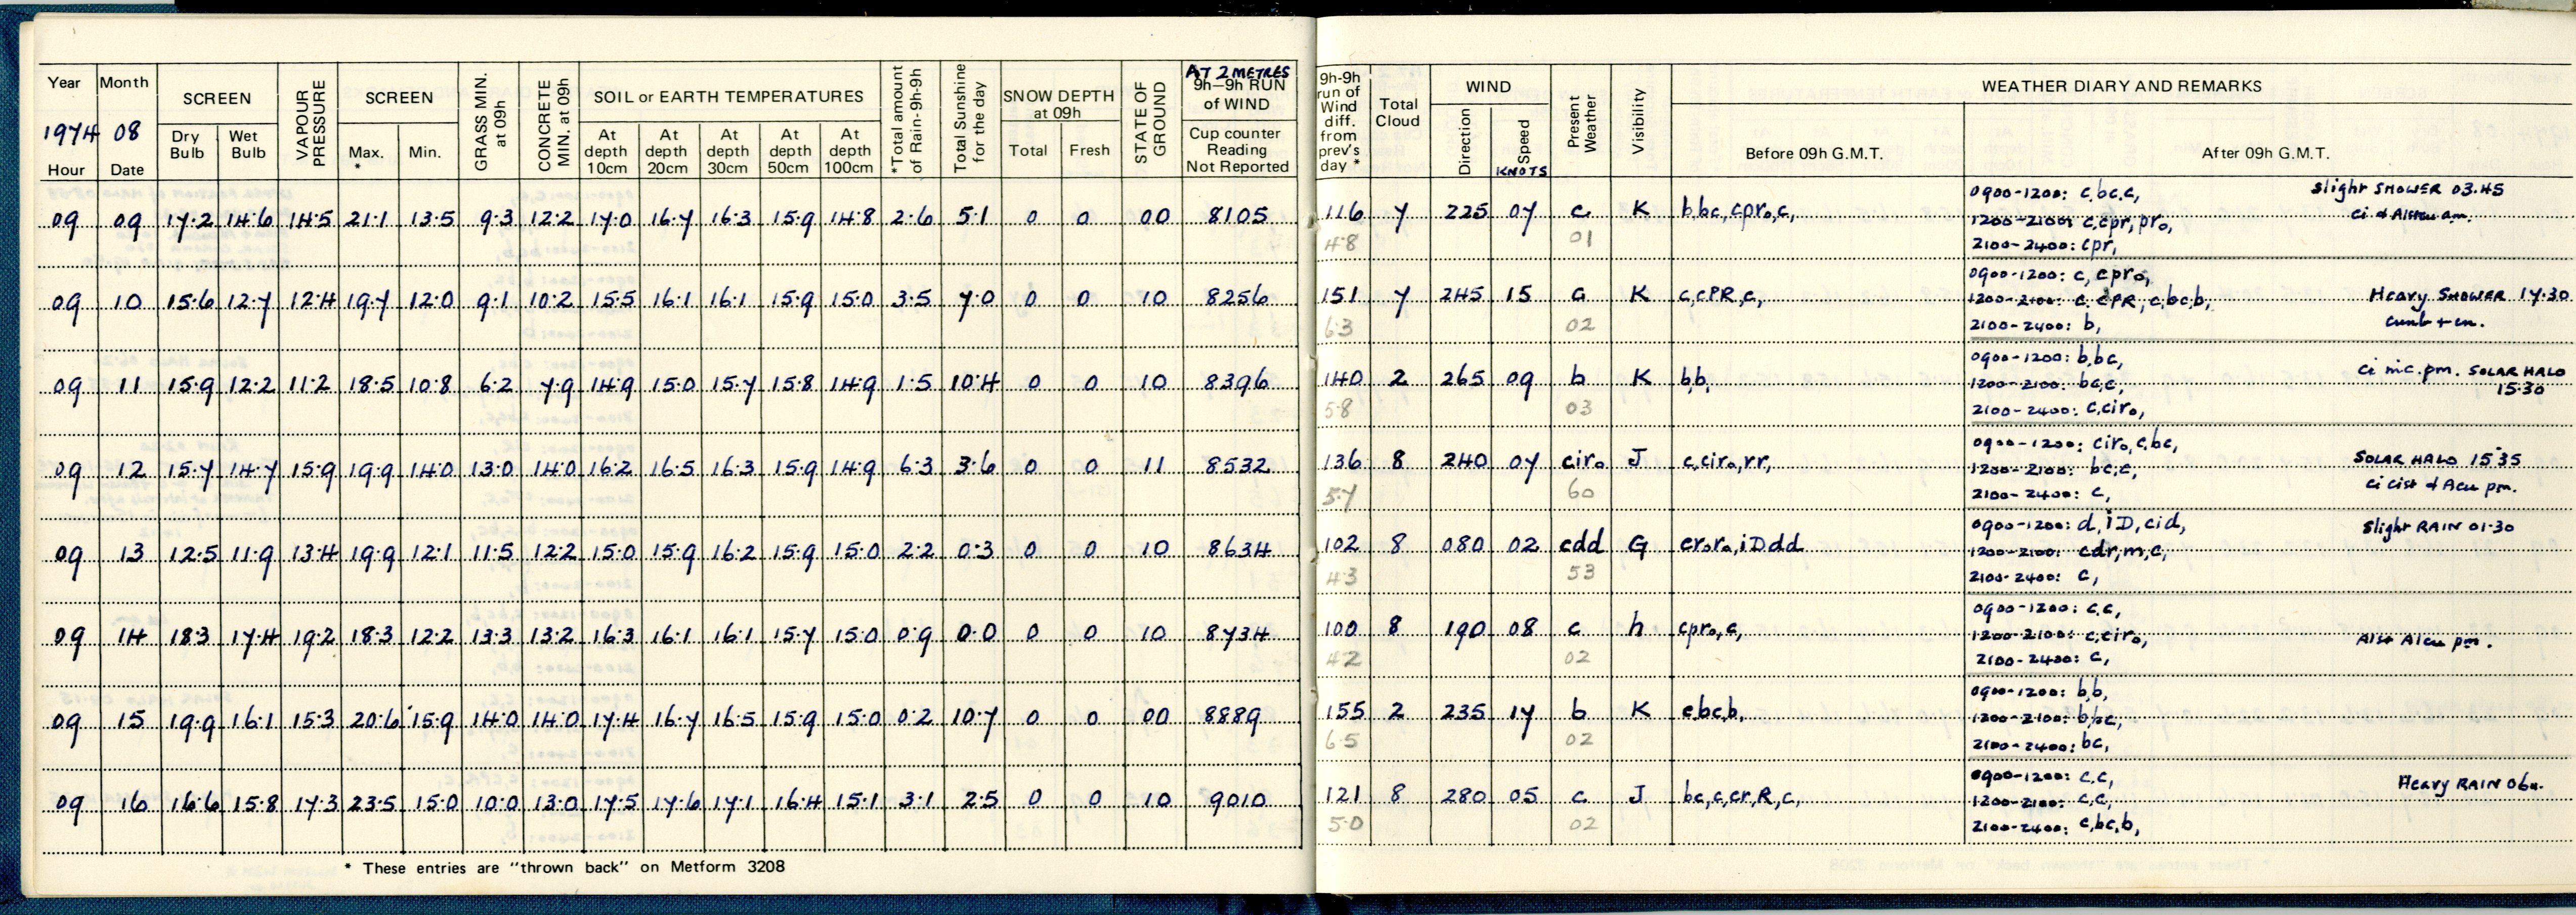 Year Month SCREEN VAPOUR PRESSURE SCREEN GRASS MIN. at 09h CONCRETE MIN. at 09h SOIL or EARTH TEMPERATURES *Total amount of Rain-9h-9h Total Sunshine for the day SNOW DEPTH at 09h STATE OF GROUND AT 2 METRES 9h-9h RUN of WIND
1974 08 Dry Bulb Wet Bulb Max. * Min. At depth 10cm At depth 20cm At depth 30cm At depth 50cm At depth 100cm Total Fresh Cup counter Reading Not Reported
Hour Date
9h-9h run of Wind diff. from prev's day * Total Cloud WIND Direction Speed KNOTS Present Weather Visibility WEATHER DIARY AND REMARKS
Before 09h G.M.T. After 09h G.M.T.
09 09 17.2 14.6 14.5 21.1 13.5 9.3 12.2 17.0 16.7 16.3 15.9 14.8 2.6 5.1 0 0 00 8105 116 7 225 07 c K b,bc,cpro,c,
48 01
0900-1200: c,bc,c, Slight SHOWER 03.45
1200-2100: c,cpr,pro, ci & Alstcu am.
2100-2400: cpr,
09 10 15.6 12.7 12.4 19.7 12.0 9.1 10.2 15.5 16.1 16.1 15.9 15.0 3.5 7.0 0 0 10 8256 151 7 245 15 c K c,cPR,c,
63 02
0900-1200: c, cpro,
1200-2100: c,cPR,c,bc,b, Heavy SHOWER 17.30
2100-2400: b, cunb + cu.
09 11 15.9 12.2 11.2 18.5 10.8 6.2 7.9 14.9 15.0 15.7 15.8 14.9 1.5 10.4 0 0 10 8396 140 2 265 09 b K b,b,
58 03
0900-1200: b,bc, ci inc. pm. SOLAR HALO
1200-2100: bc,c, 15.30
2100-2400: c,ciro,
09 12 15.7 14.7 15.9 19.9 14.0 13.0 14.0 16.2 16.5 16.3 15.9 14.9 6.3 3.6 0 0 11 8532 136 8 240 07 ciro J c,ciro,rr,
5.7 60
0900-1200: ciro,c,bc,
1200-2100: bc,c, SOLAR HALO 15.35
2100-2400: c, ci cist & Acu pm.
09 13 12.5 11.9 13.4 19.9 12.1 11.5 12.2 15.0 15.9 16.2 15.9 15.0 2.2 0.3 0 0 10 8634 102 8 080 02 cdd G croro,iDdd
43 53
0900-1200: d,iD,cid, Slight RAIN 01.30
1200-2100: cdr,m,c,
2100-2400: c,
09 14 18.3 17.4 19.2 18.3 12.2 13.3 13.2 16.3 16.1 16.1 15.7 15.0 0.9 0.0 0 0 10 8734 100 8 190 08 c h cpro,c,
42 02
0900-1200: c,c,
1200-2100: c,ciro, Alst Alcu pm.
2100-2400: c,
09 15 19.9 16.1 15.3 20.6 15.9 14.0 14.0 17.4 16.7 16.5 15.9 15.0 0.2 10.7 0 0 00 8889 155 2 235 17 b K c,bc,b,
6.5 02
0900-1200: b,b,
1200-2100: b,bc,
2100-2400: bc,
09 16 16.6 15.8 17.3 23.5 15.0 10.0 13.0 17.5 17.6 17.1 16.4 15.1 3.1 2.5 0 0 10 9010 121 8 280 05 c J bc,c,cr,R,c,
5.0 02
0900-1200: c,c, Heavy RAIN
1200-2100: c,c,
2100-2400: c,bc,b,
* These entries are "thrown back" on Metform 3208